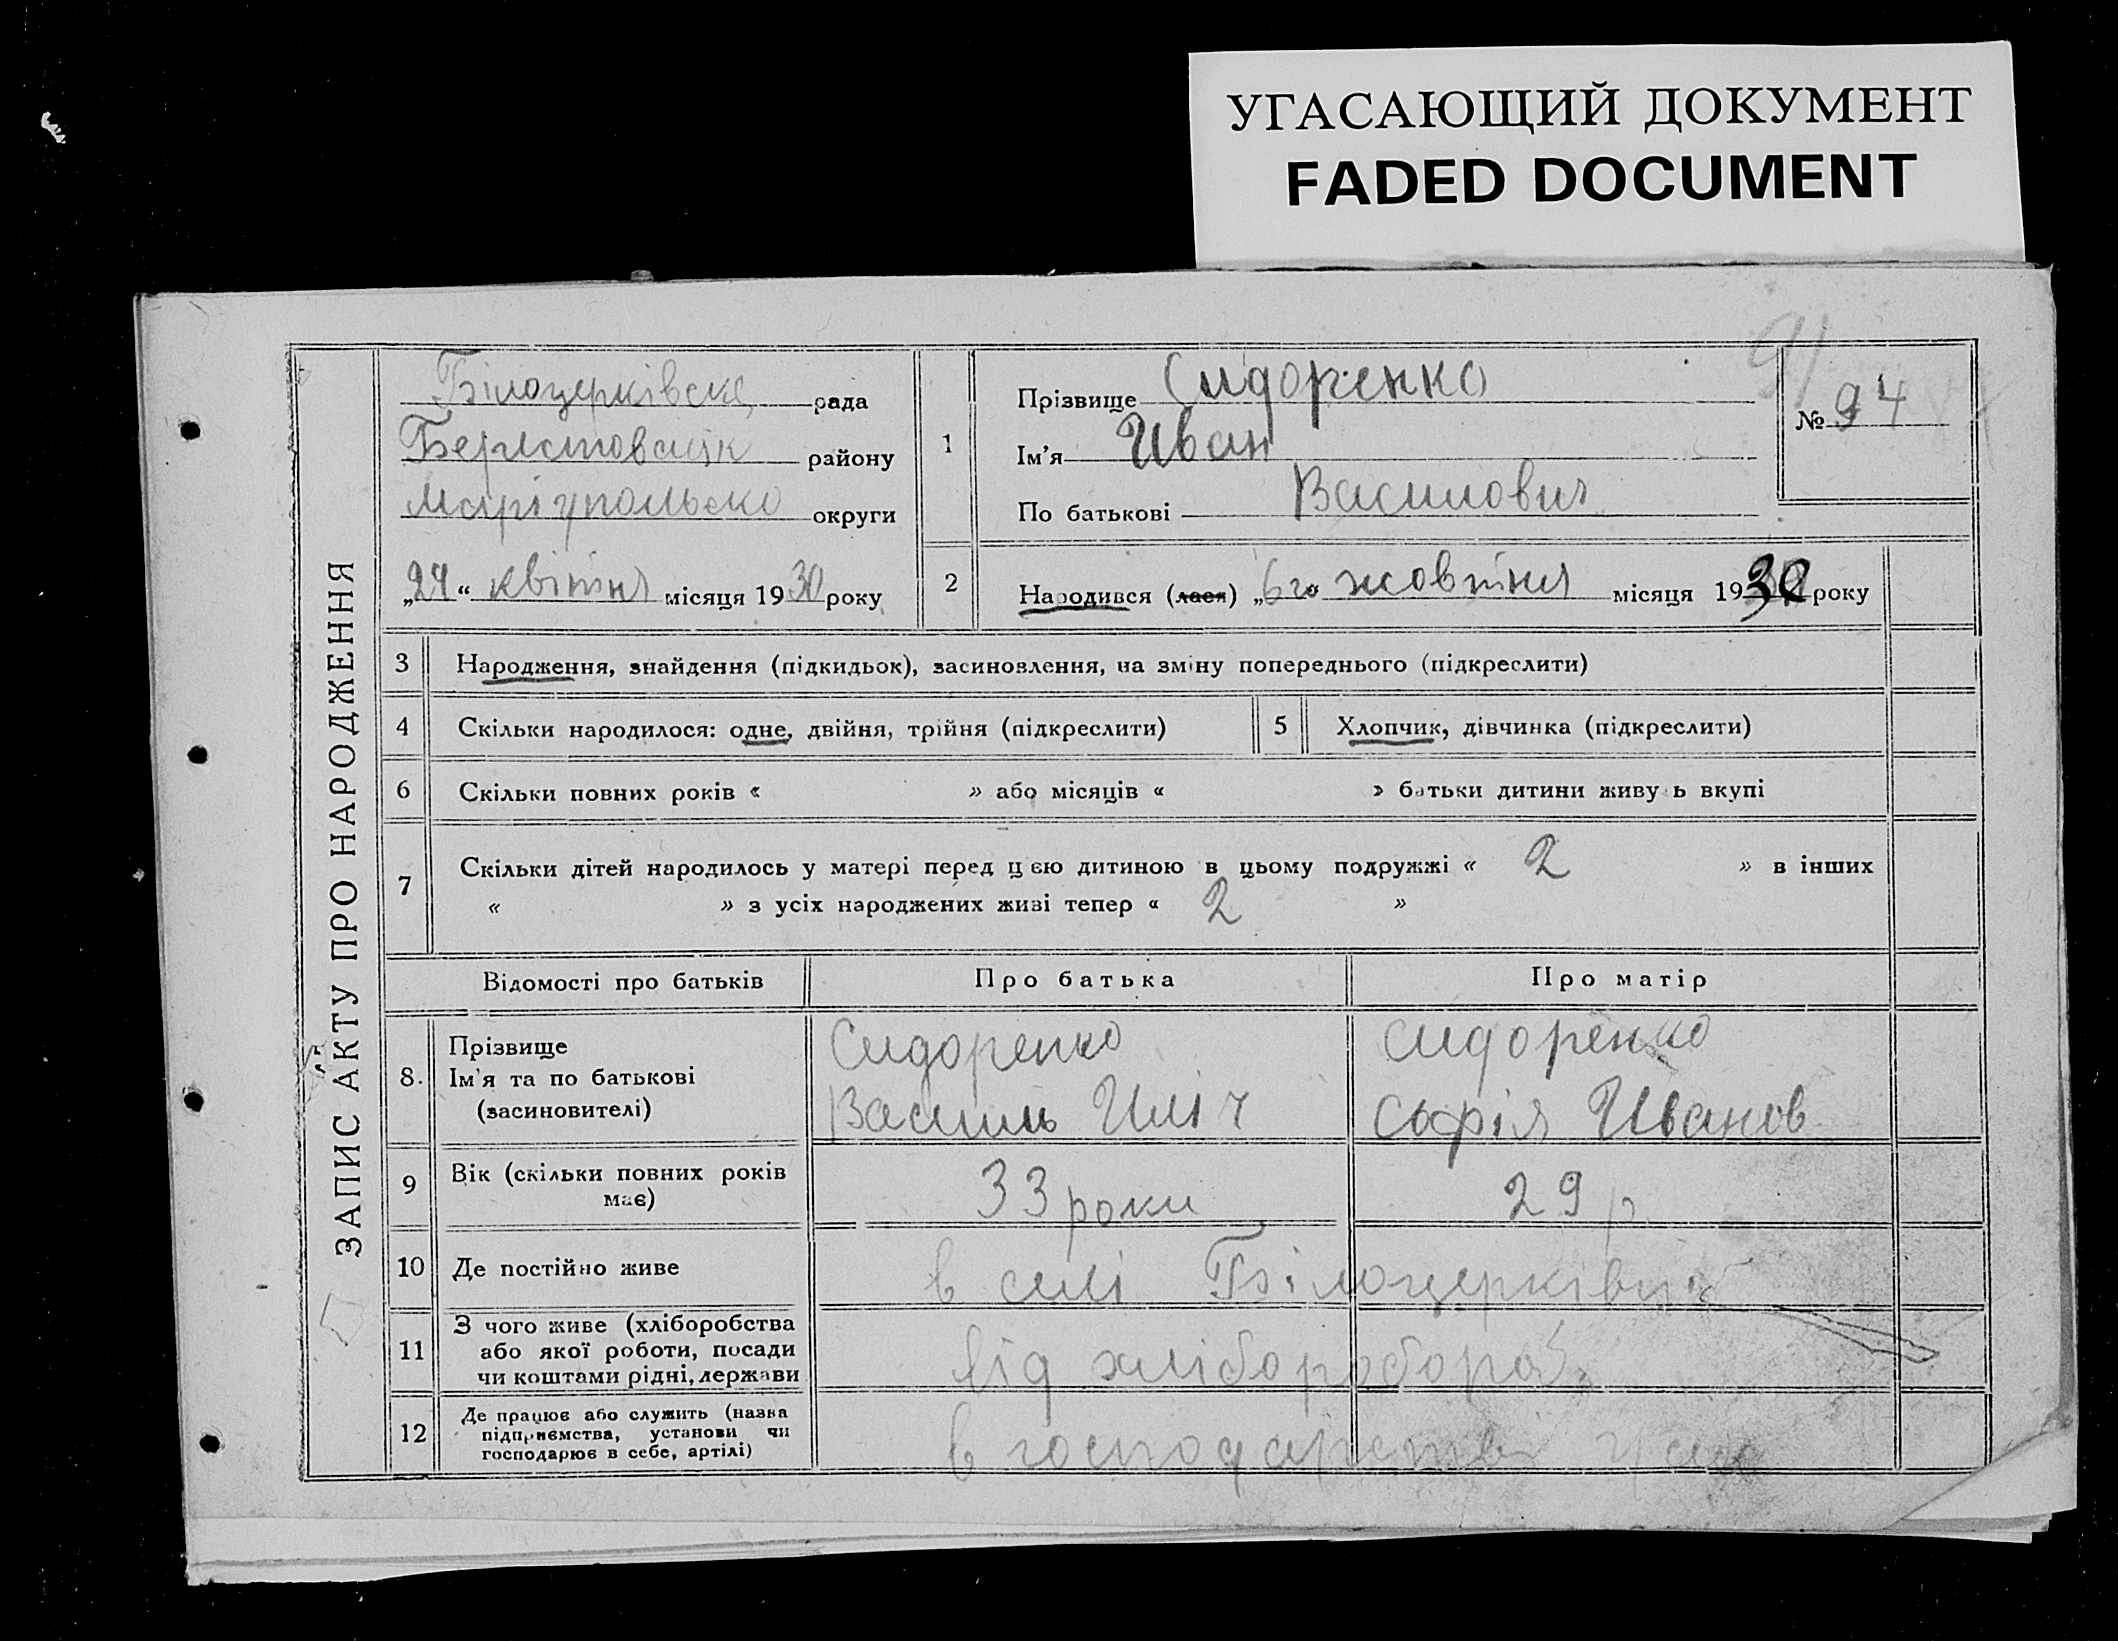 УГАСАЮЩИЙ ДОКУМЕНТ
FADED DOCUMENT
ЗАПИС АКТУ ПРО НАРОДЖЕННЯ
Білоцерківска рада
району
Маріупольско округи
„24“ квітня місяця 1930 року
1
Прізвище Сидоренко
Ім'я Иван
По батькові Василович
№ 94
2
Народився (лася) „6го жовтня місяця 1930 року
3 Народження, знайдення (підкидьок), засиновлення, на зміну попереднього (підкреслити)
4 Скільки народилося: одне, двійня, трійня (підкреслити)
5 Хлопчик, дівчинка (підкреслити)
6 Скільки повних років « » або місяців « » батьки дитини живуть вкупі
7 Скільки дітей народилось у матері перед цією дитиною в цьому подружжі « 2 » в інших
« » з усіх народжених живі тепер « 2 »
Відомості про батьків Про батька Про матір
8. Прізвище
Ім'я та по батькові
(засиновителі)
Сидоренко
Василь Иліч
Сидоренко
Софія Иванов
9 Вік (скільки повних років
має)
33 роки
29 р
10 Де постійно живе
в селі Білоцерківці
11 З чого живе (хліборобства
або якої роботи, посади
чи коштами рідні, держави
від хлібороборо
12 Де працює або служить (назва
підприємства, установи чи
господарює в себе, артілі)
в господарстві